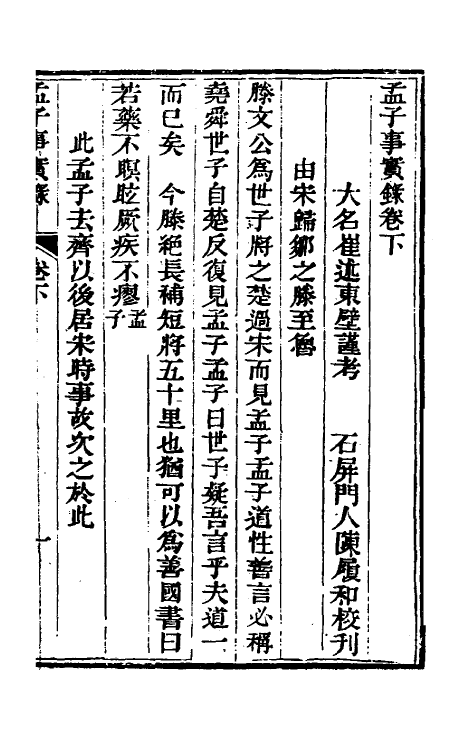 孟子事實錄卷下
大名崔述東壁謹考　石屏門人陳履和校刊
由宋歸鄒之滕至魯
滕文公爲世子將之楚過宋而見孟子孟子道性善言必稱
堯舜世子自楚反復見孟子孟子曰世子疑吾言乎夫道一
而已矣　今滕絕長補短將五十里也猶可以爲善國書曰
若藥不瞑眩厥疾不瘳孟子
此孟子去齊以後居宋時事故次之於此
孟子事實錄　卷下　一